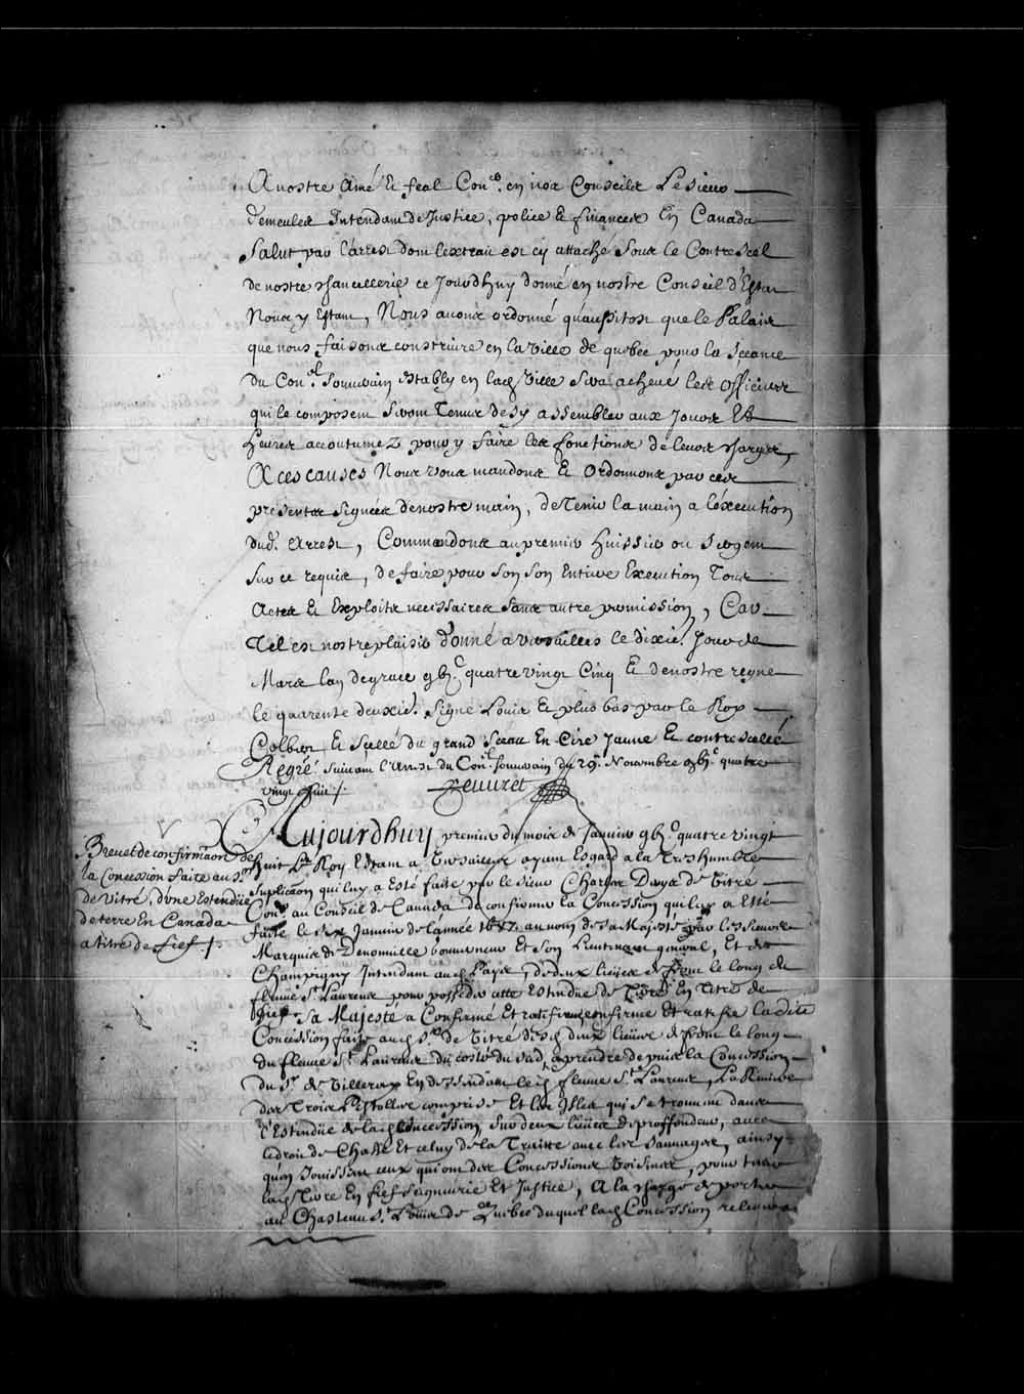 A nostre amé & feal Con.er en nos Conseils Le sieur
demeules Intendant de Justice, police & finances En Canada
Salut par l'arrest dont lextrait est cy attaché sous le Contrescel
de nostre chancellerie ce Jourdhuy donné en nostre Conseil d'Estat
Nous y Estant, Nous avons ordonné qu'aussitost que le Palais
que nous faisons construire en la ville de quebec pour la sceance
du Con.el souverain estably en lad ville sera achevé les officiers
qui le composent seront Tenus de sy assembler aux Jours Et
heures accoutumez pour y faire les fonctions de leurs charges
A ces causes Nous vous mandons & ordonnons par ces
presentes signées de nostre main, de Tenir la main a l'éxecution
dud. Arrest, Commandons au premier huissier ou sergent
sur ce requis, de faire pour son Entiere Execution Tous
Actes & Exploits necessaires sans autre permission, Car
Tel est nostre plaisir donné a versailles le dixie. Jour de
Mars lan de grace gbj.c quatre vingt Cinq & de nostre regne
le quarente deuxie. Signé Louis & plus bas par le Roy
Colbert & scellé du grand sceau En Cire Jaune & contrescellé
Regré suivant l'arrest du Con.el souverain du 29.e Novembre gbj.c quatre
vingt huit /.
Peuvret
Aujourdhuy premier du mois de Janvier gbj.c quatre vingt
Brevet de confirmaon de
la Concession faite au sr.
de vitré, d'une Estendüe
de terre En Canada
a titre de fief /.
huit Le Roy Estant a Versailles ayant Esgard a la Tres humble
suplicaon qui luy a Esté faite par le sieur Charles Denys de Vitré
Con.er au Conseil de Canada de confirmer la Concession qui luy a Esté
faite le six Janvier de l'année au nom de sa Majesté par les sieurs
Marquis de Denonville Gouverneur Et son Lieutenant general, Et de
Champigny Intendant aud Pays, de deux lieües de front le long du
fleuve St. Laurens pour posseder cette Estendüe de Terre En Titre de
fief. Sa Majesté a Confirmé Et ratifié confirme Et ratifie ladite
Concession faite aud Sr. de Vitré desd deux lieües de front le long
du fleuve St. Laurens du costé du sud, a prendre depuis la Concession
du Sr. de Villeray En dessendant led fleuve St. Laurens, La Riviere
des Trois Pistolles comprise Et les Isles qui se trouvent dans
l'Estendüe de lad Concession, sur deux lieües de proffondeur, avec
le droit de Chasse Et celuy de la Traitte avec les sauvages, ainsy
quen Jouissent ceux qui ont des Concessions voisines, pour tenir
lad Terre En fief seigneurie Et Justice, A la charge de porter
au Chasteau St. Louis de Quebec duquel lad Concession relevera